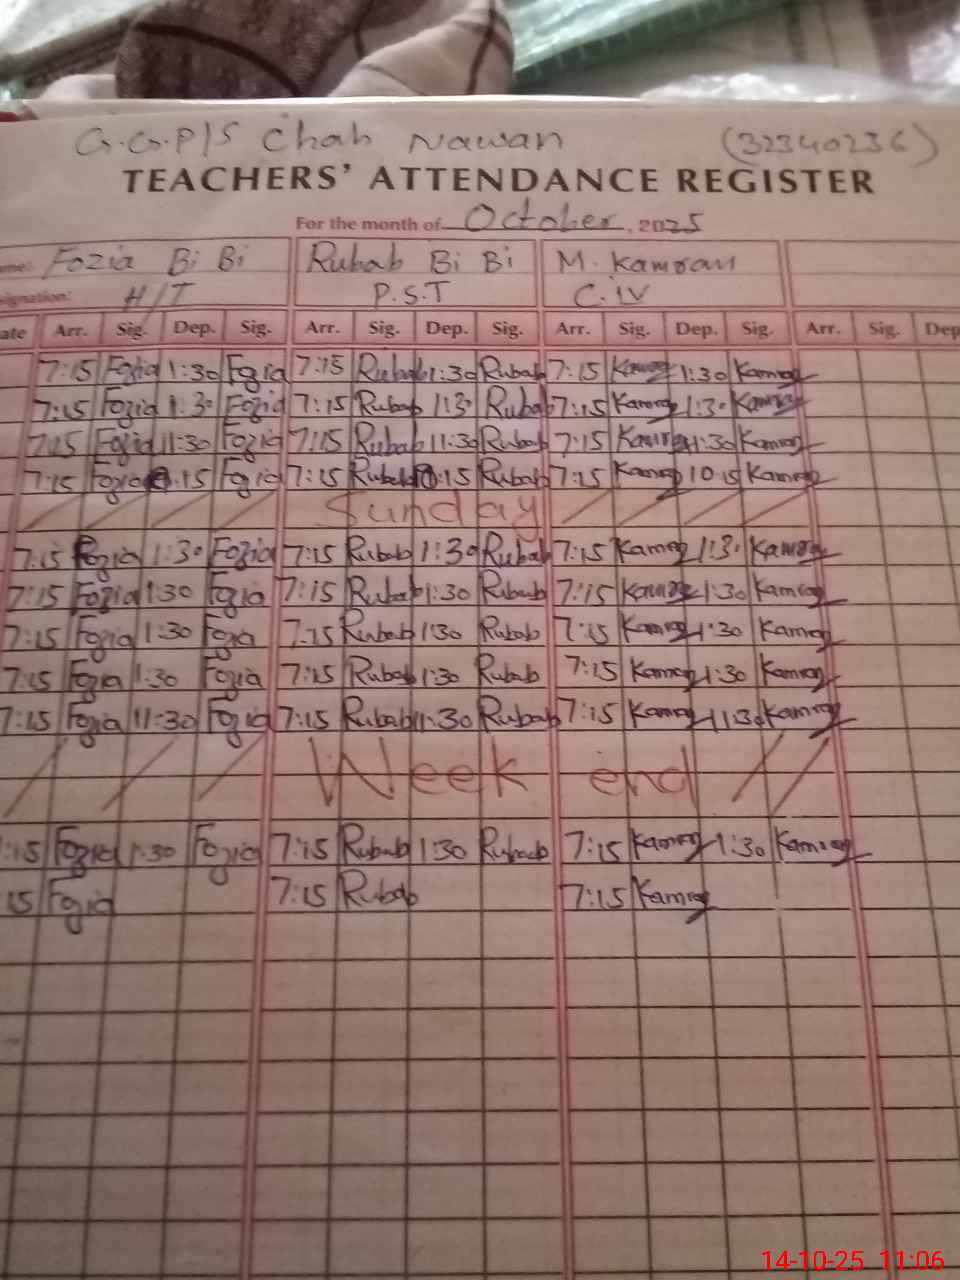 G.G.P/S Chah Nawan (32340236)
TEACHERS' ATTENDANCE REGISTER
For the month of October, 2025
ame: Fozia Bi Bi Rubab Bi Bi M. Kamran
signation: H/T P.S.T C.IV
ate Arr. Sig. Dep. Sig. Arr. Sig. Dep. Sig. Arr. Sig. Dep. Sig. Arr. Sig. Dep
7:15 Fozia 1:30 Fozia 7:15 Rubab 1:30 Rubab 7:15 Kamran 1:30 Kamran
7:15 Fozia 1:30 Fozia 7:15 Rubab 1:30 Rubab 7:15 Kamran 1:30 Kamran
7:15 Fozia 11:30 Fozia 7:15 Rubab 11:30 Rubab 7:15 Kamran 11:30 Kamran
7:15 Fozia :15 Fozia 7:15 Rubab 10:15 Rubab 7:15 Kamran 10:15 Kamran
Sunday
7:15 Fozia 1:30 Fozia 7:15 Rubab 1:30 Rubab 7:15 Kamran 1:30 Kamran
7:15 Fozia 1:30 Fozia 7:15 Rubab 1:30 Rubab 7:15 Kamran 1:30 Kamran
7:15 Fozia 1:30 Fozia 7:15 Rubab 1:30 Rubab 7:15 Kamran 1:30 Kamran
7:15 Fozia 1:30 Fozia 7:15 Rubab 1:30 Rubab 7:15 Kamran 1:30 Kamran
7:15 Fozia 11:30 Fozia 7:15 Rubab 11:30 Rubab 7:15 Kamran 11:30 Kamran
Week end
:15 Fozia 1:30 Fozia 7:15 Rubab 1:30 Rubab 7:15 Kamran 1:30 Kamran
15 Fozia 7:15 Rubab 7:15 Kamran
14-10-25 11:06